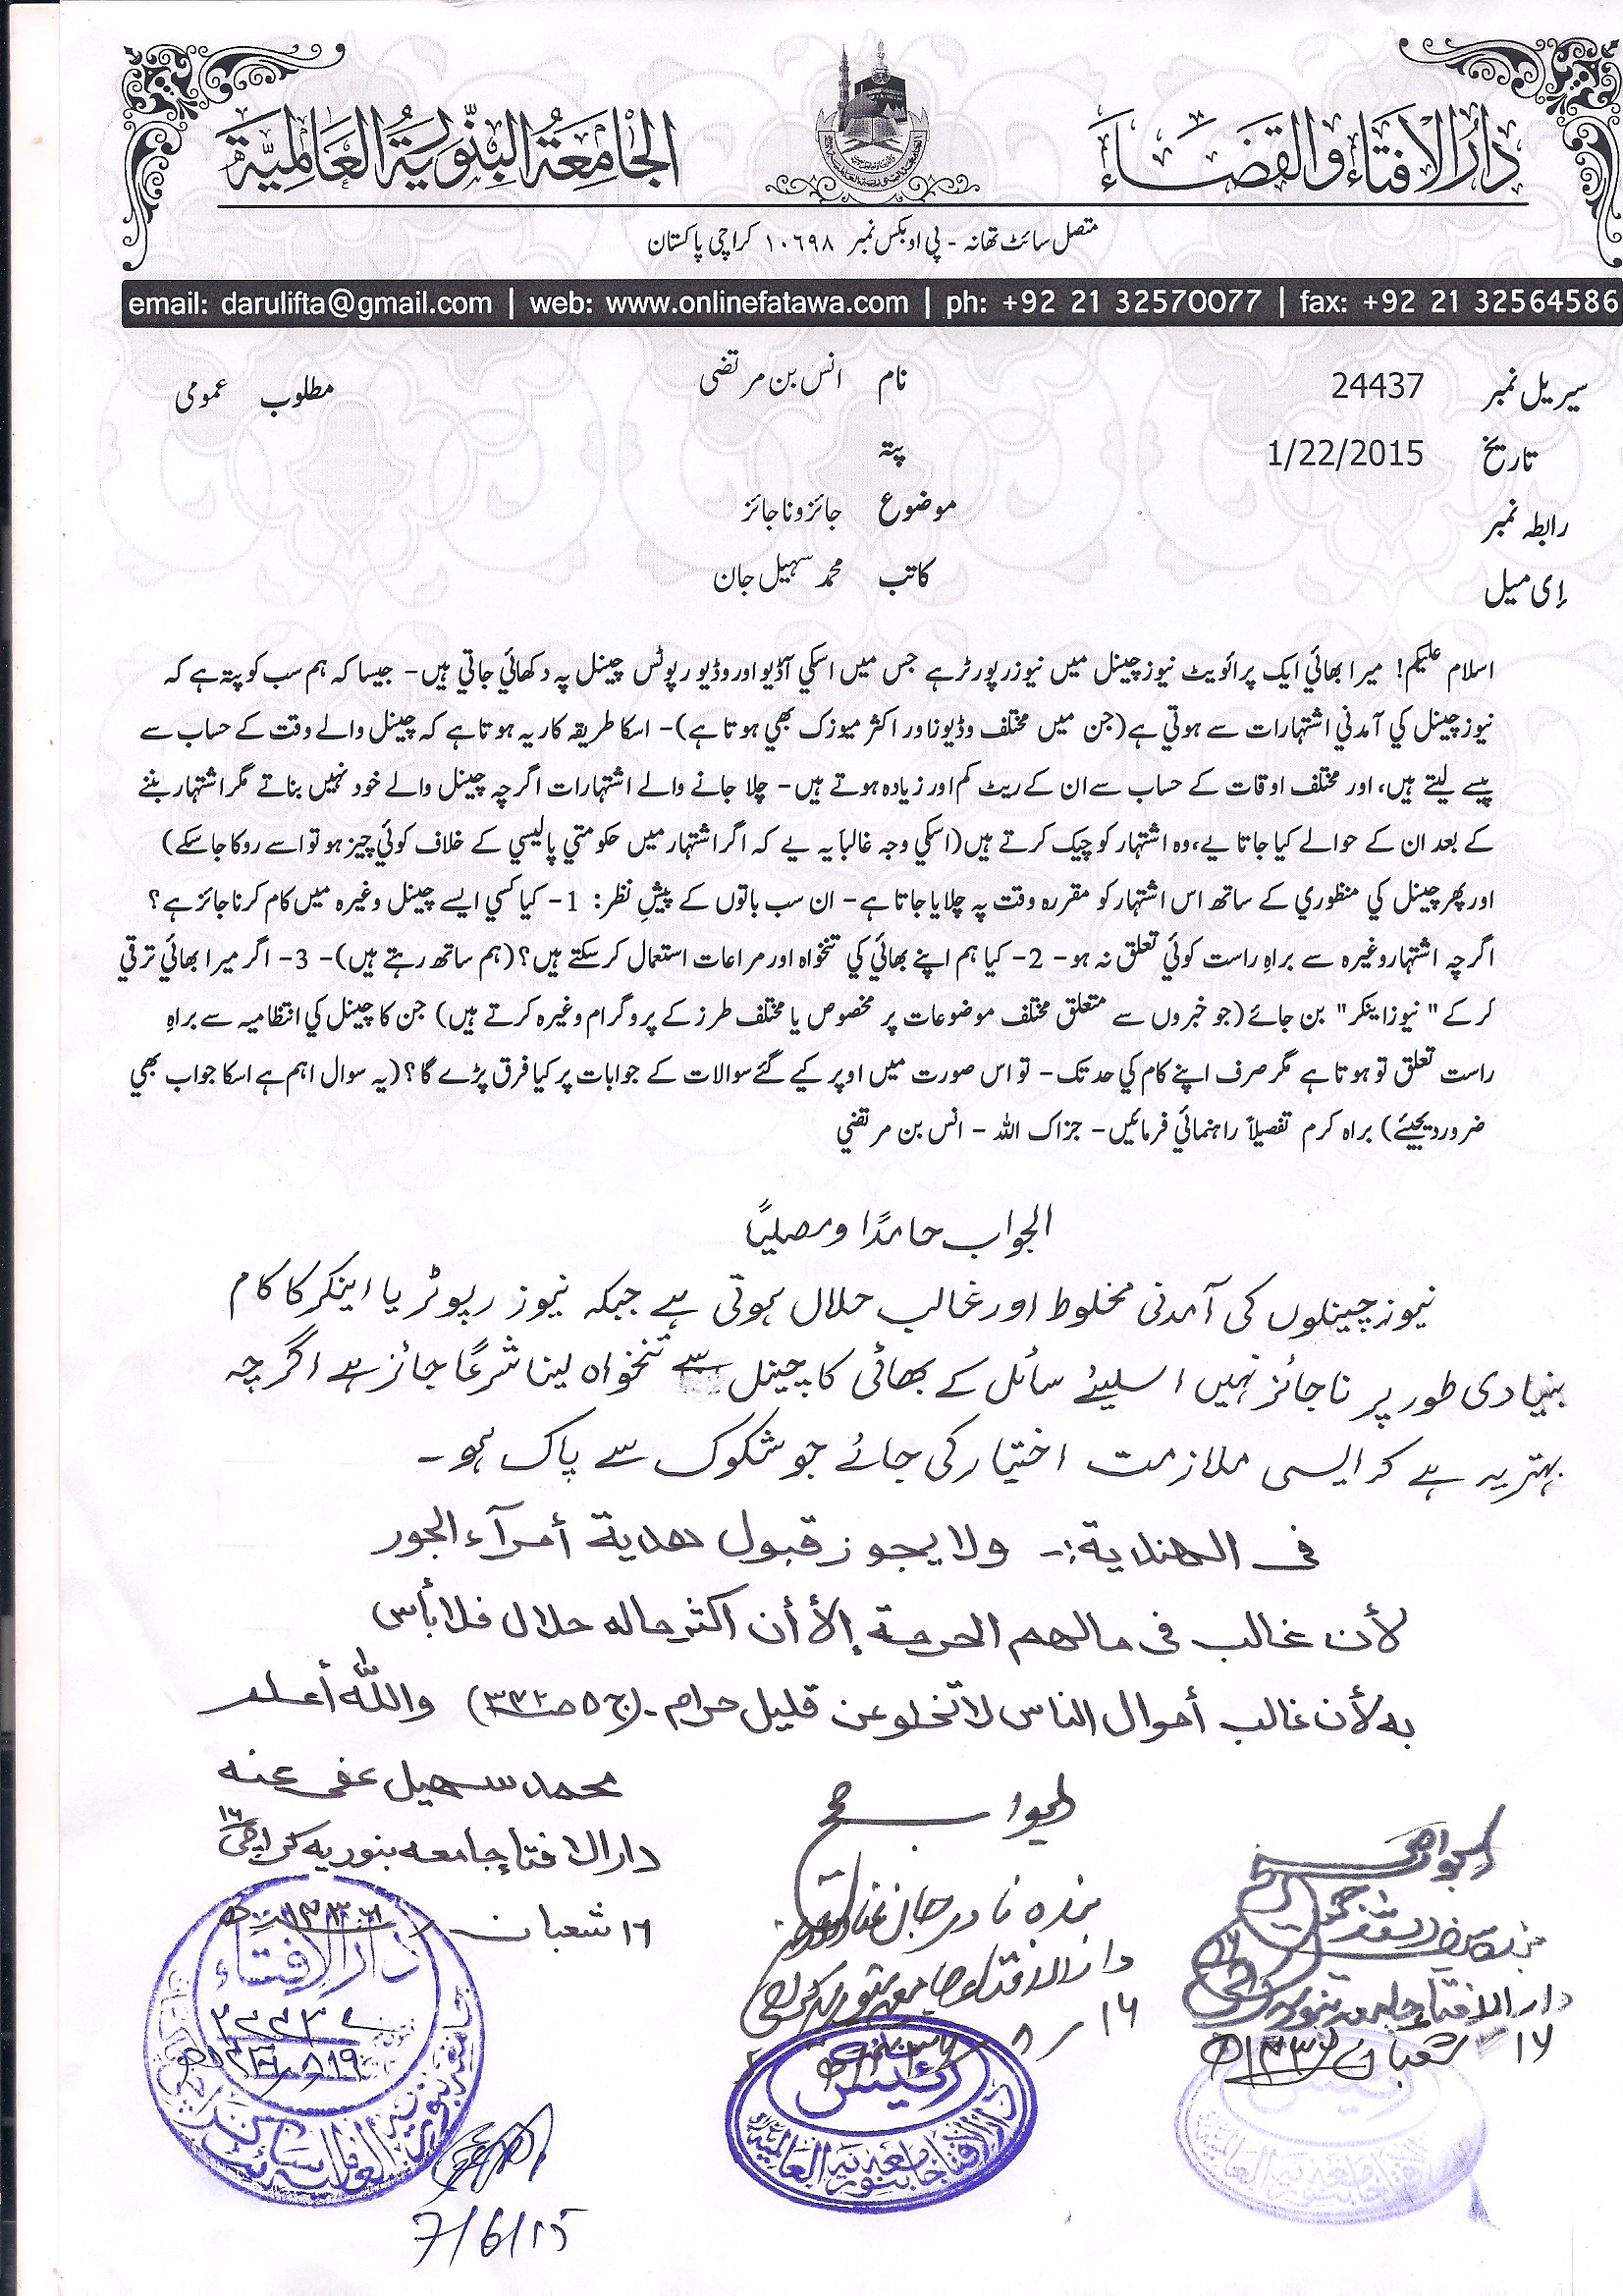 دارُالافتاء والقضَاء
الجامعَةُ البِنّوریَّۃُ العَالمِیَّۃ
متصل سائٹ تھانہ - پی او بکس نمبر ١٠٦٩٨ کراچی پاکستان
email: darulifta@gmail.com | web: www.onlinefatawa.com | ph: +92 21 32570077 | fax: +92 21 32564586
سیریل نمبر 24437 نام انس بن مرتضی مطلوب عمومی
تاریخ 1/22/2015 پتہ
رابطہ نمبر موضوع جائز و ناجائز
اِی میل کاتب محمد سہیل جان
اسلام علیکم! میرا بھائي ایک پرائویٹ نیوز چینل میں نیوز رپورٹر ہے جس میں اسکي آڈیو اور وڈیو رپوٹس چینل پہ دکھائي جاتي ہیں- جیسا کہ ہم سب کو پتہ ہے کہ
نیوز چینل کي آمدني اشتہارات سے ہوتي ہے (جن میں مختلف وڈیوز اور اکثر میوزک بھي ہوتا ہے)- اسکا طریقہ کار یہ ہوتا ہے کہ چینل والے وقت کے حساب سے
پیسے لیتے ہیں، اور مختلف اوقات کے حساب سے ان کے ریٹ کم اور زیادہ ہوتے ہیں- چلا جانے والے اشتہارات اگرچہ چینل والے خود نہیں بناتے مگر اشتہار بننے
کے بعد ان کے حوالے کیا جاتا ہے، وہ اشتہار کو چیک کرتے ہیں (اسکي وجہ غالباً یہ ہے کہ اگر اشتہار میں حکومتي پالیسي کے خلاف کوئي چیز ہو تو اسے روکا جاسکے)
اور پھر چینل کي منظوري کے ساتھ اس اشتہار کو مقررہ وقت پہ چلایا جاتا ہے- ان سب باتوں کے پیشِ نظر: 1- کیا کسي ایسے چینل وغیرہ میں کام کرنا جائز ہے؟
اگرچہ اشتہار وغیرہ سے براہِ راست کوئي تعلق نہ ہو- 2- کیا ہم اپنے بھائي کي تنخواہ اور مراعات استعمال کر سکتے ہیں؟ (ہم ساتھ رہتے ہیں)- 3- اگر میرا بھائي ترقي
کر کے "نیوز اینکر" بن جائے (جو خبروں سے متعلق مختلف موضوعات پر مخصوص یا مختلف طرز کے پروگرام وغیرہ کرتے ہیں) جن کا چینل کي انتظامیہ سے براہِ
راست تعلق تو ہوتا ہے مگر صرف اپنے کام کي حد تک- تو اس صورت میں اوپر کیے گئے سوالات کے جوابات پر کیا فرق پڑے گا؟ (یہ سوال اہم ہے اسکا جواب بھي
ضرور دیجیئے) براہ کرم تفصیلاً راہنمائي فرمائیں- جزاک اللہ - انس بن مرتضي
الجواب حامدًا ومصلیًا
نیوز چینلوں کی آمدنی مخلوط اور غالب حلال ہوتی ہے جبکہ نیوز رپوٹر یا اینکر کا کام
بنیادی طور پر ناجائز نہیں اسلیئے سائل کے بھائی کا چینل سے تنخواہ لینا شرعًا جائز ہے اگرچہ
بہتر یہ ہے کہ ایسی ملازمت اختیار کی جائے جو شکوک سے پاک ہو۔
فی الھندیۃ:- ولا یجوز قبول ھدیۃ أمرآء الجور
لأن غالب فی مالھم الحرمۃ إلا أن اکثر مالہ حلال فلا بأس
بہ لأن غالب أموال الناس لا تخلو عن قلیل حرام۔ (ج ٥ ص) واللہ أعلم
محمد سہیل عفی عنہ
دار الافتاء جامعہ بنوریہ کراچی ١٦
١٦ شعبان ١٤٣٦ھ
الجواب صحیح
بندہ نادر جان
دار الافتاء جامعہ بنوریہ کراچی
١٦ / ٨ /
الجواب صحیح
دار الافتاء جامعہ بنوریہ
١٦ شعبان
دار الافتاء
رئیس
دار الافتاء جامعہ بنوریہ العالمیہ
7/6/15